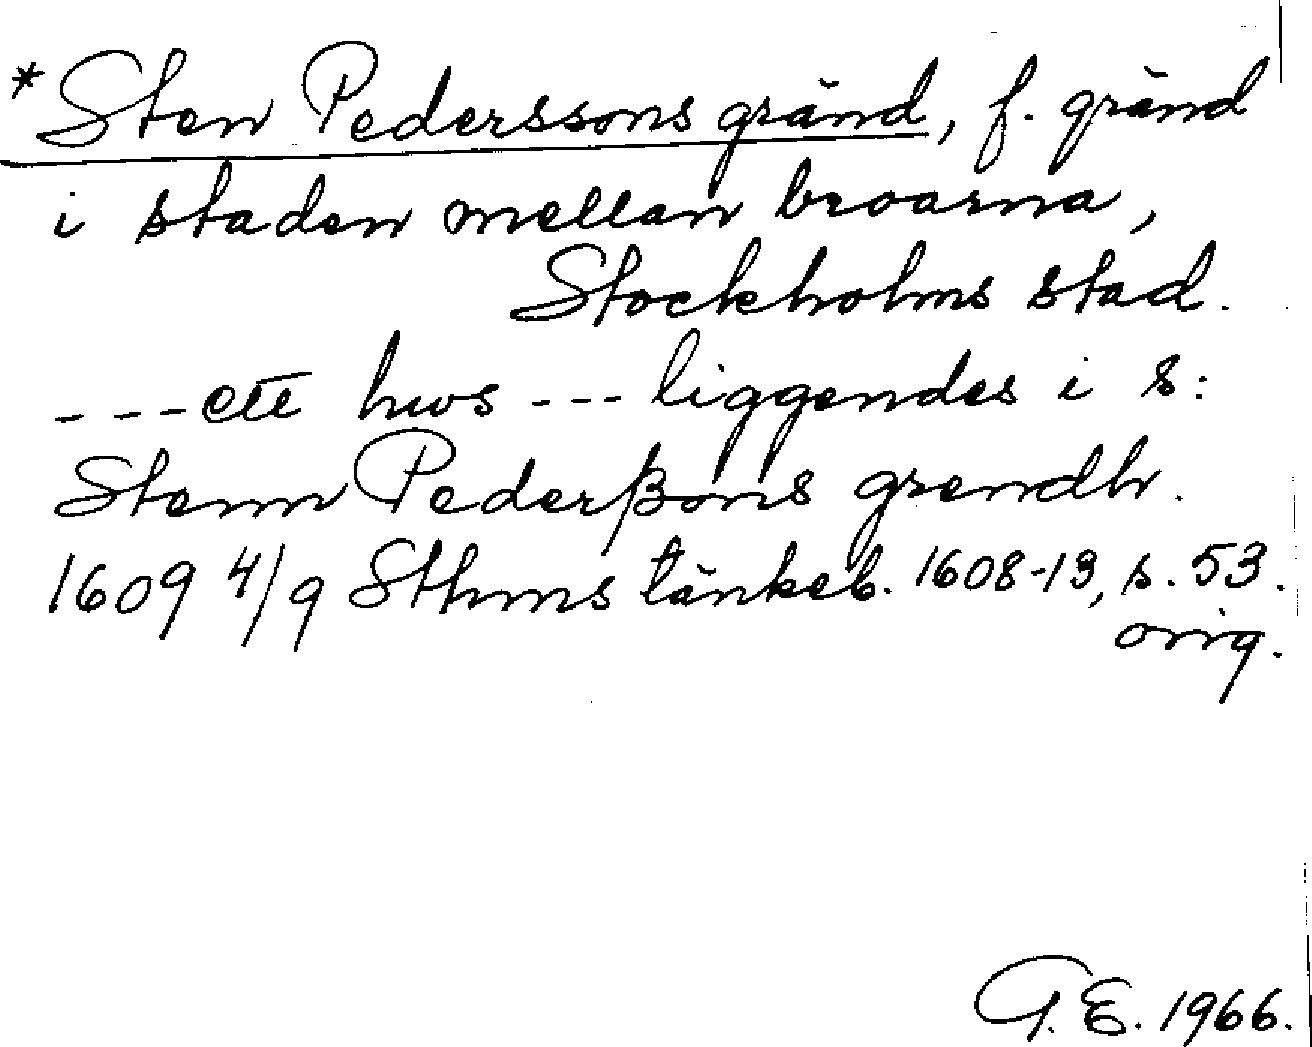 *Sten Pederssons gränd, f. gränd
i staden mellan broarna,
Stockholms stad.
---ett hws --- liggendes i s:
Stenn Pederßons grendh.
1609 4/9 Sthms tänkeb. 1608-13, s. 53.
orig.
G. E. 1966.